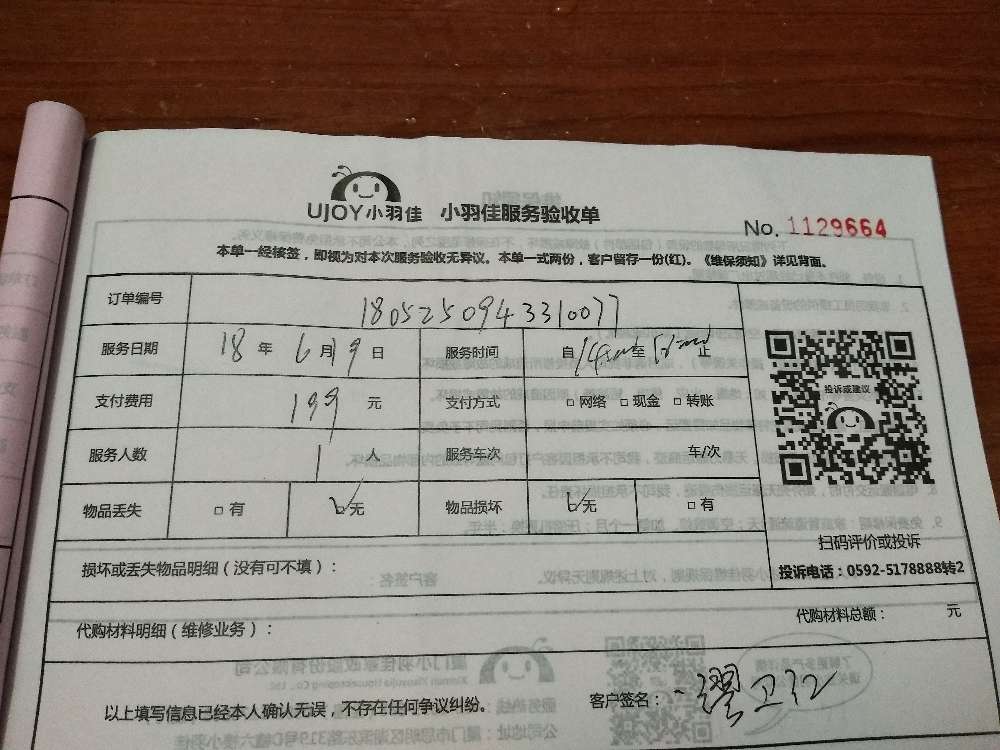 UJOY小羽佳 小羽佳服务验收单
No. 1129664
本单一经接签，即视为对本次服务验收无异议。本单一式两份，客户留存一份(红)。《维保须知》详见背面。
订单编号 1805250943310077
服务日期 18年6月19日 服务时间 自14 至 止
支付费用 199元 支付方式 □网络 □现金 □转账
投诉或建议
服务人数 1人 服务车次 车/次
物品丢失 □有 □无 物品损坏 □无 □有
扫码评价或投诉
损坏或丢失物品明细（没有可不填）：
投诉电话：0592-5178888转2
代购材料明细（维修业务）：
代购材料总额： 元
以上填写信息已经本人确认无误，不存在任何争议纠纷。 客户签名：